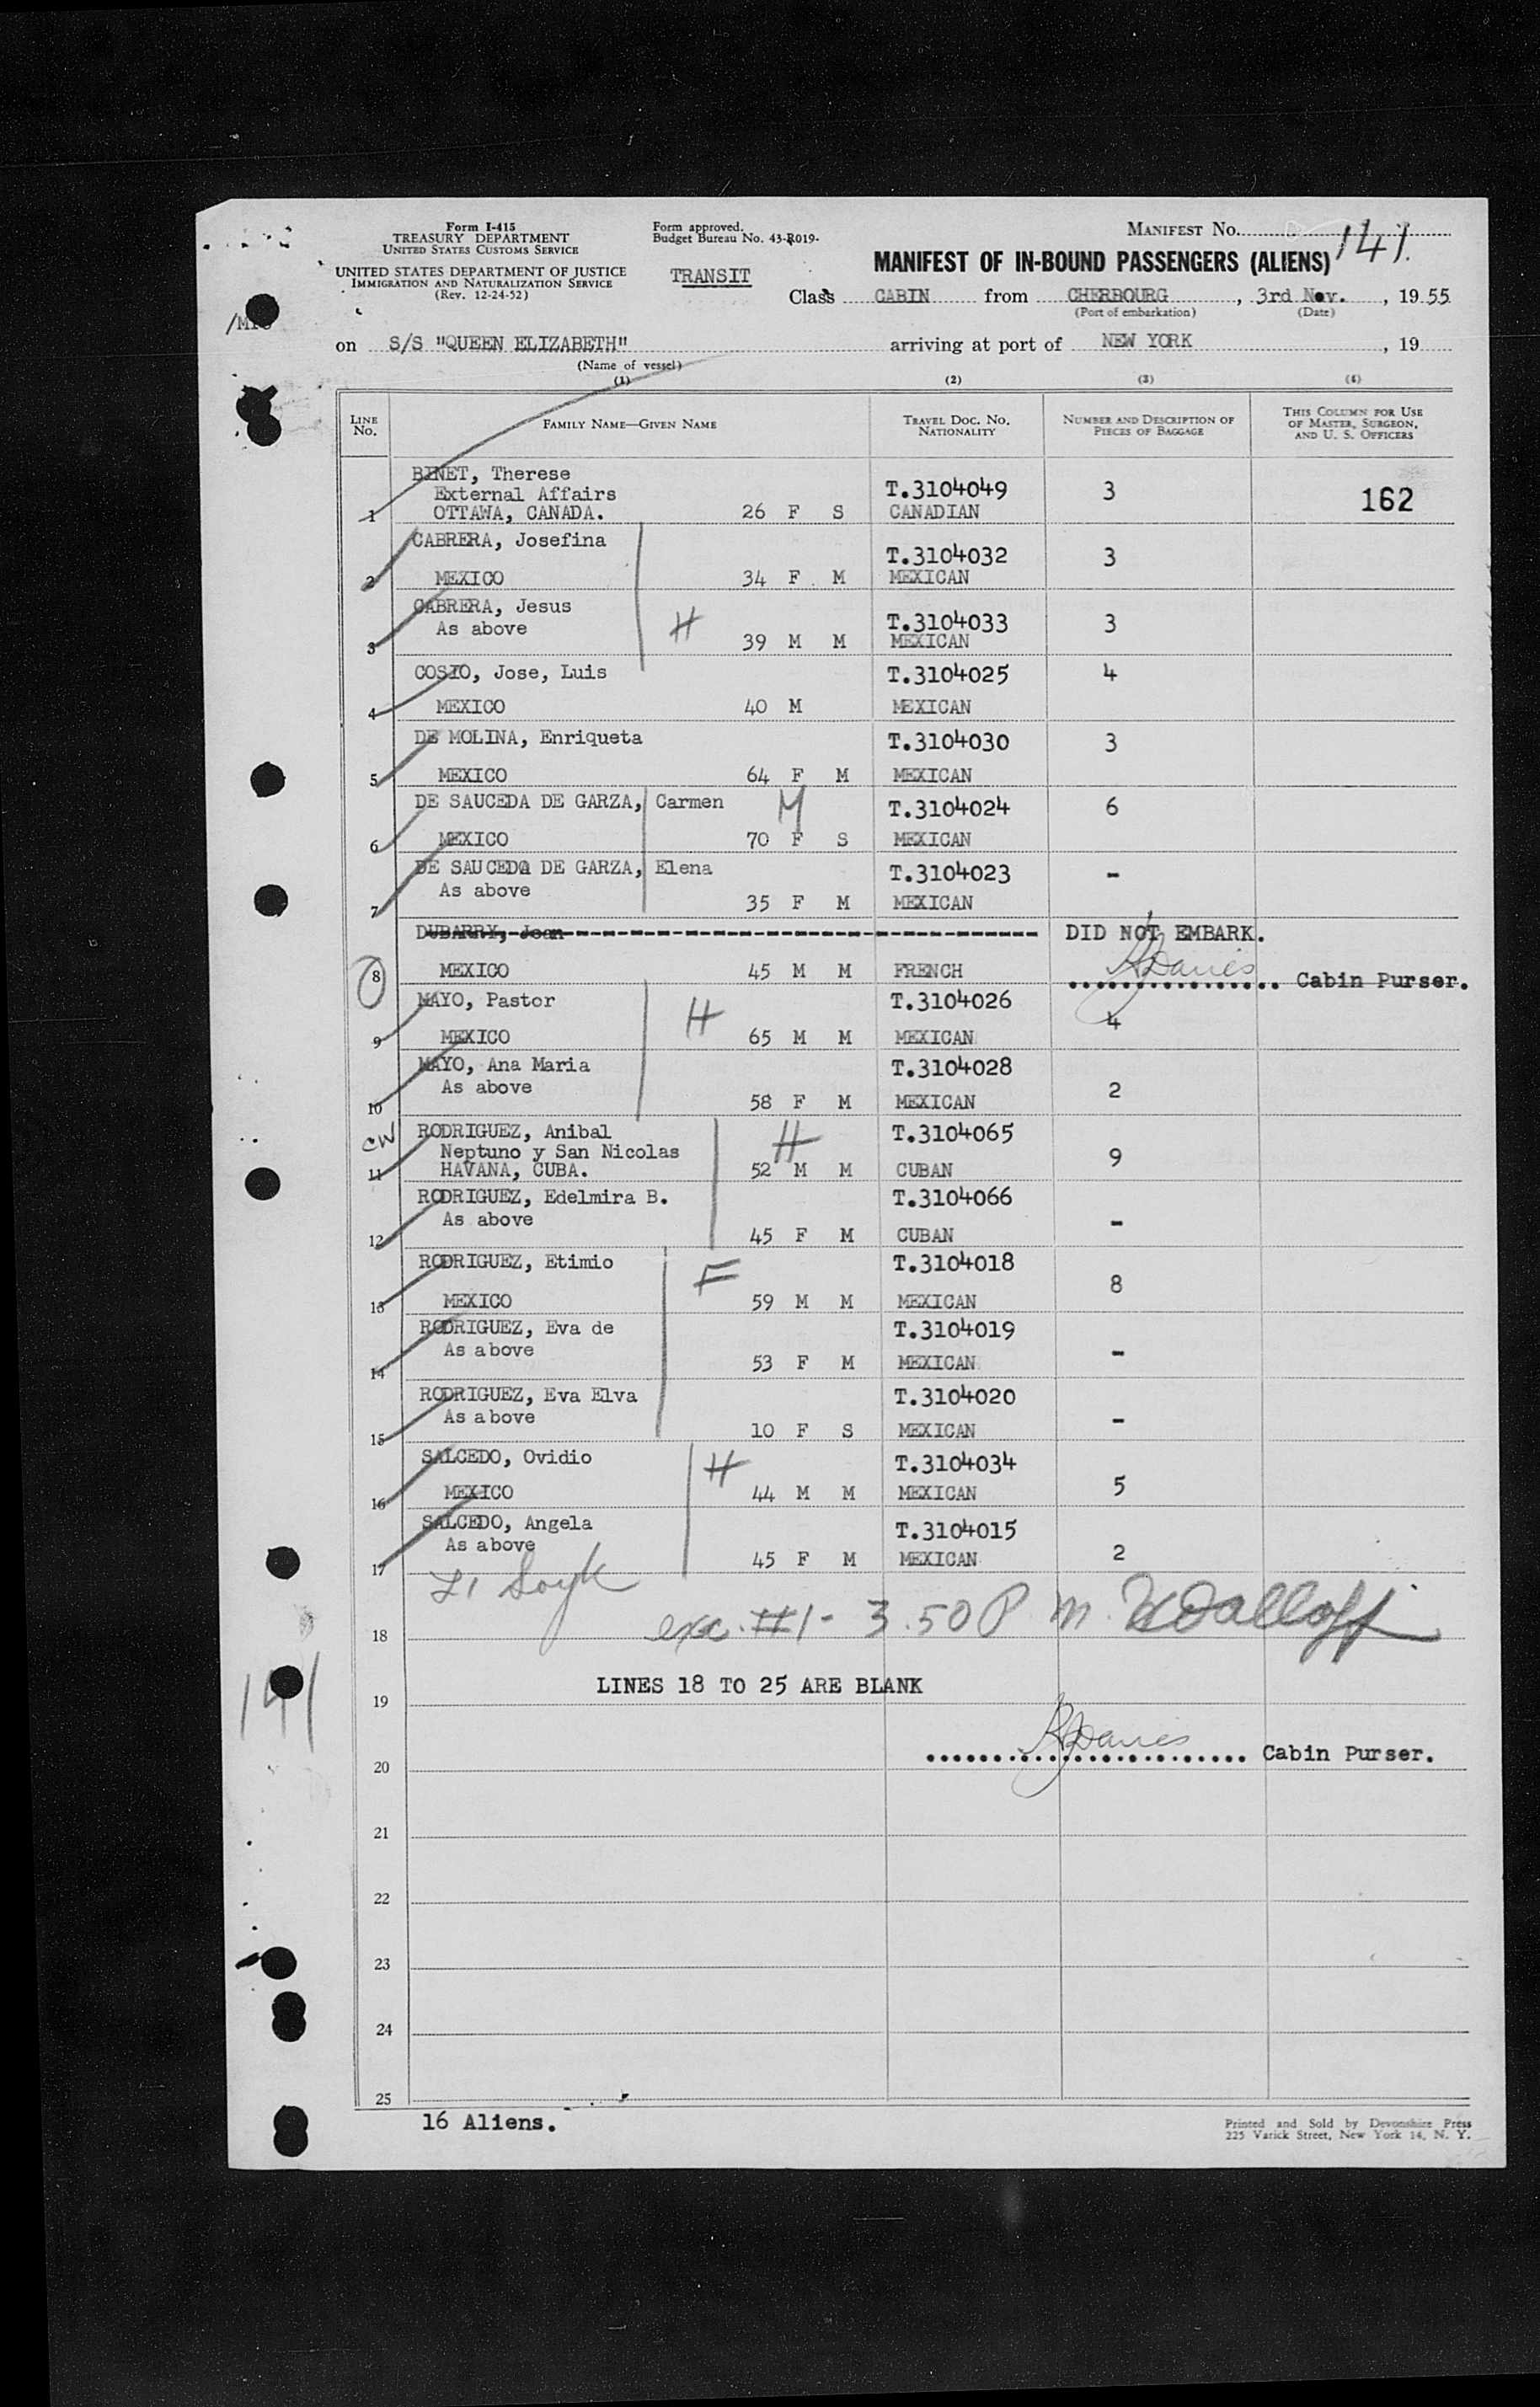 Form I-415
TREASURY DEPARTMENT
UNITED STATES CUSTOMS SERVICE
UNITED STATES DEPARTMENT OF JUSTICE
IMMIGRATION AND NATURALIZATION SERVICE
(Rev. 12-24-52)
Form approved.
Budget Bureau No. 43-R019-
TRANSIT
MANIFEST No. 141
MANIFEST OF IN-BOUND PASSENGERS (ALIENS)
Class CABIN from CHERBOURG, 3rd Nov., 1955
(Port of embarkation) (Date)
on S/S "QUEEN ELIZABETH" arriving at port of NEW YORK, 19
(Name of vessel)
(1) (2) (3) (4)
LINE No. FAMILY NAME—GIVEN NAME TRAVEL DOC. No. NATIONALITY NUMBER AND DESCRIPTION OF PIECES OF BAGGAGE THIS COLUMN FOR USE OF MASTER, SURGEON, AND U. S. OFFICERS
BINET, Therese
External Affairs T.3104049 3 162
1 OTTAWA, CANADA. 26 F S CANADIAN
CABRERA, Josefina T.3104032 3
2 MEXICO 34 F M MEXICAN
CABRERA, Jesus
As above H T.3104033 3
3 39 M M MEXICAN
COSIO, Jose, Luis T.3104025 4
4 MEXICO 40 M MEXICAN
DE MOLINA, Enriqueta T.3104030 3
5 MEXICO 64 F M MEXICAN
DE SAUCEDA DE GARZA, Carmen M T.3104024 6
6 MEXICO 70 F S MEXICAN
DE SAUCEDA DE GARZA, Elena T.3104023 -
As above
7 35 F M MEXICAN
DUBARRY, Jean DID NOT EMBARK.
8 MEXICO 45 M M FRENCH Davies Cabin Purser.
MAYO, Pastor H T.3104026 4
9 MEXICO 65 M M MEXICAN
MAYO, Ana Maria T.3104028
As above 2
10 58 F M MEXICAN
CW RODRIGUEZ, Anibal H T.3104065
Neptuno y San Nicolas 9
11 HAVANA, CUBA. 52 M M CUBAN
RODRIGUEZ, Edelmira B. T.3104066
As above -
12 45 F M CUBAN
RODRIGUEZ, Etimio F T.3104018
8
13 MEXICO 59 M M MEXICAN
RODRIGUEZ, Eva de T.3104019
As above -
14 53 F M MEXICAN
RODRIGUEZ, Eva Elva T.3104020
As above -
15 10 F S MEXICAN
SALCEDO, Ovidio H T.3104034
16 MEXICO 44 M M MEXICAN 5
SALCEDO, Angela T.3104015
As above
17 45 F M MEXICAN 2
18 exc. #1- 3.50 P m.
141
19 LINES 18 TO 25 ARE BLANK
20 Davies Cabin Purser.
21
22
23
24
25
16 Aliens.
Printed and Sold by Devonshire Press
225 Varick Street, New York 14, N. Y.